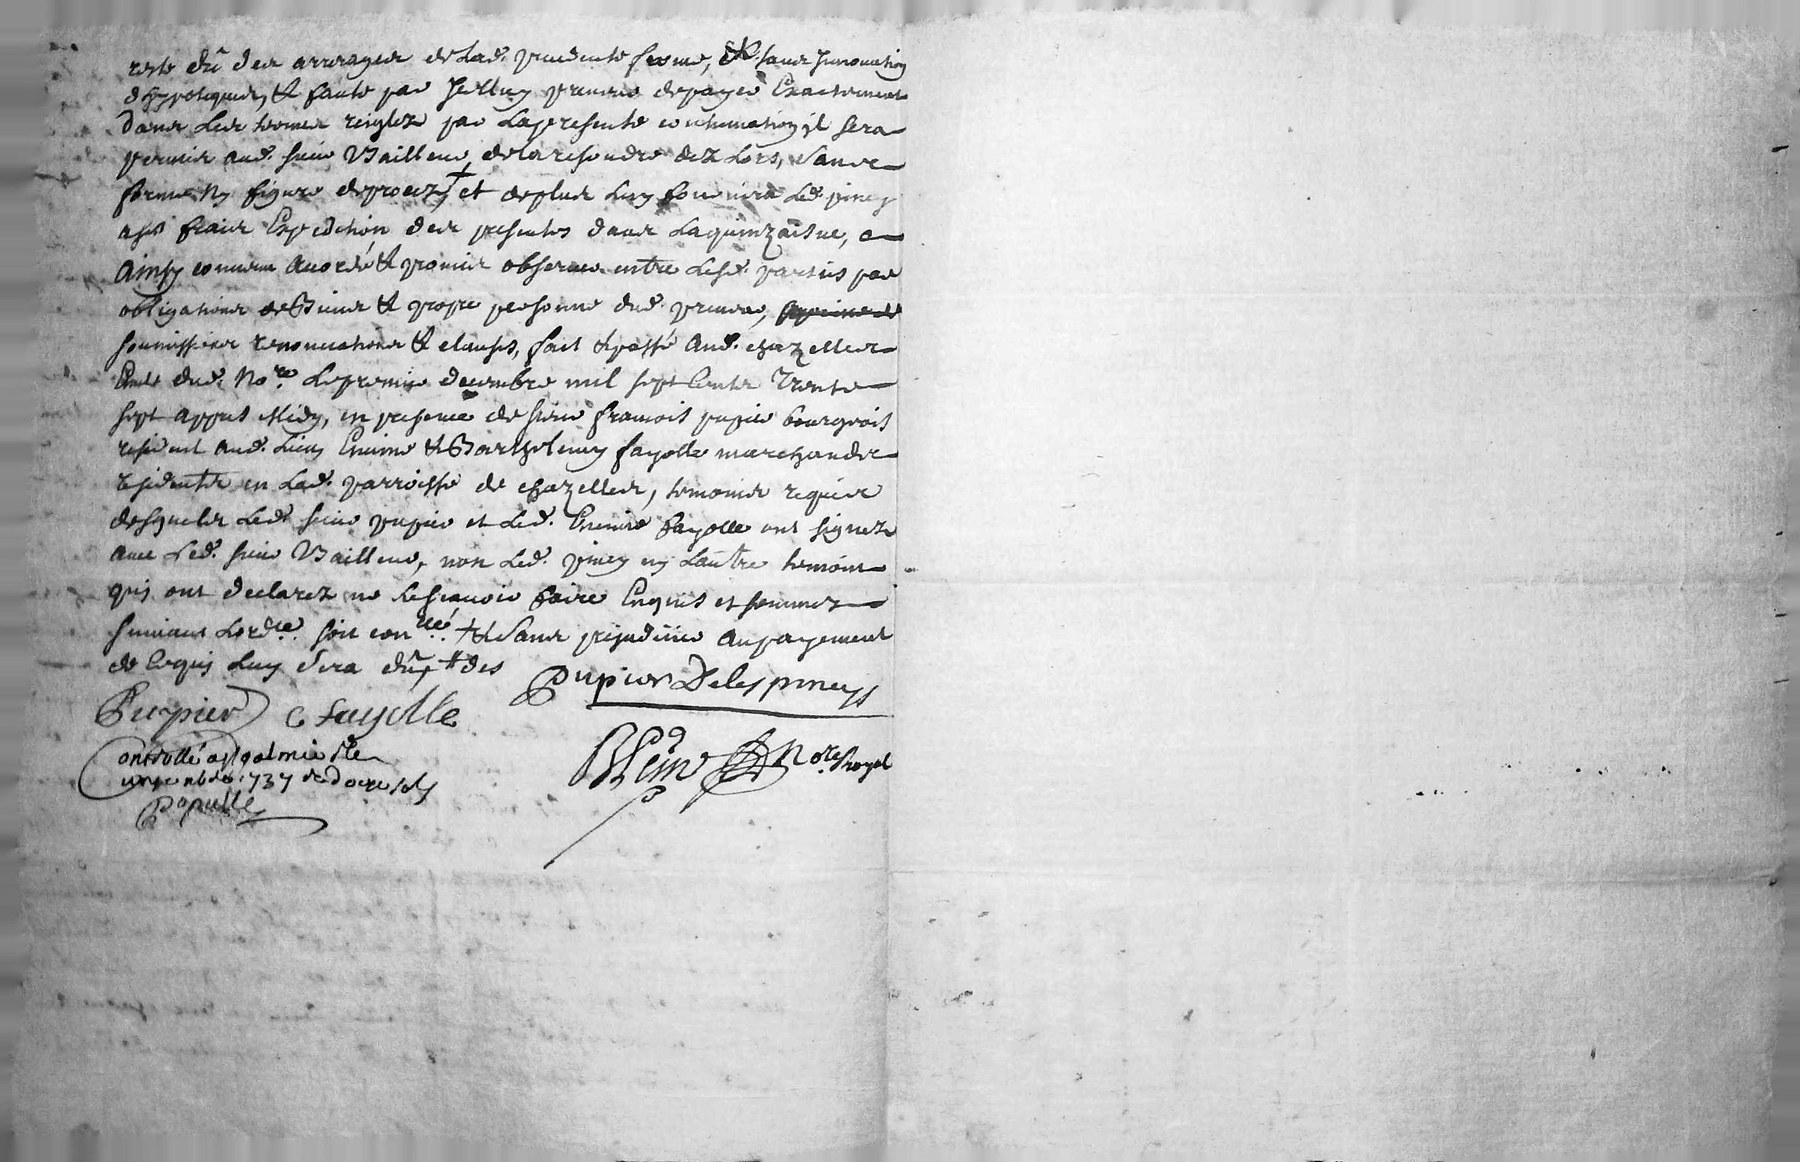 reste dû des arrerages de lad. precedente ferme, & sans Innovation
d'hypoteques, & faute par Icelluy preneur de payer Exactement
dans les termes reiglez par la presente continuation il sera
permis aud. sieur Bailleur, de la resoudre dez Lors, sans
forme Ny figure de procez, + et de plus luy fournira led. piney
a ses fraix Expedition des presentes dans la quinzaisne,
Ainsy convenu accordé & promis observer entre lesd. parties par
obligations de Biens & propre personne dud. preneur,
soumissions renonciations & clauses, fait & passé aud. chazelles
Estude dud. No.re le premier decembre mil sept Cents Trente
sept appres Midy, en presence de sieur francois pupier bourgeois
resident aud. lieu Enemo & Barthelemy fayolle marchands
residents en lad. parroisse de chazelles, temoins requis
desquels led. sieur pupier et led. Enemo fayolle ont signez
avec led. sieur Bailleur, non led. piney ny l'autre temoin
qui ont declarez ne le scavoir faire Enquis et sommez
suivant l'ord.ce soit con.llé + & sans prejudice au payement
de ce qui luy sera dû, # des
Pupier Delespineys
Pupier E fayolle
Controllé a St galmier le
1737 Rd douze sols
Bheno No.re Royal
Populle